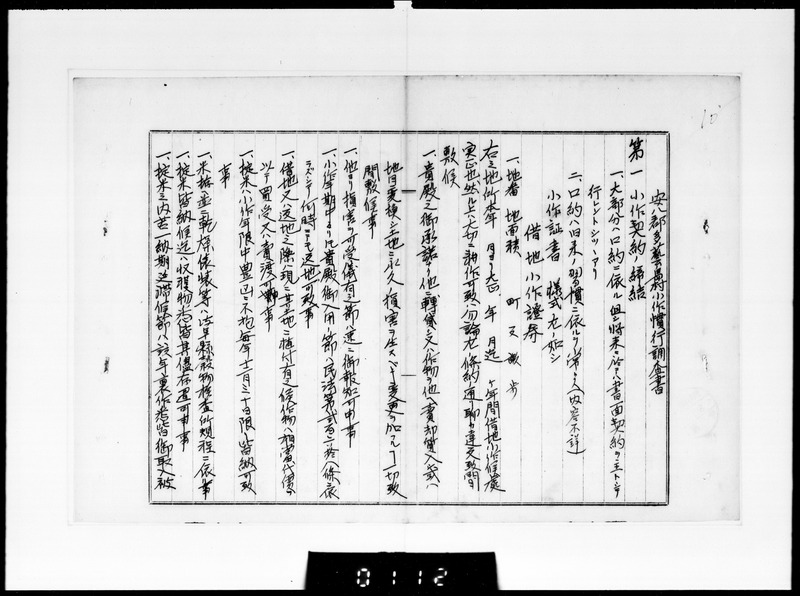 安ノ郡 村小作慣行調査書
第一 小作契約ノ締結
一、大部分ハ口約ニ依ル 但シ将来ニ於テハ書面契約ヲ主トシテ
行レントシツヽアリ
二、口約ハ旧来ノ習慣ニ依ル (内容不詳)
小作証書 様式左ノ如シ
借地小作證券
一、地番 地面積 町 反 畝 歩
右之地所本年 月ヨリ大正 年 月迄 ヶ年間借地小作仕度
実正也然ル上ハ大切ニ耕作可致ハ勿論左ノ條約通リ聊カ違変致間
敷候
一、貴殿之御承諾ナク他ニ轉貸シ又ハ作物ヲ他ヘ賣却質入或ハ
地目変換シ土地ニ永久ノ損害ヲ生スベキ変更ヲ加フル 一切致
間敷候事
一、他ヨリ損害ヲ可受儀有之節ハ速ニ御報知可申事
一、小作年期中ヨリトモ貴殿御入用ノ節ハ民法第 條ニ依
ラズシテ何時ニテモ返地可致事
一、借地又ハ返地之際ハ現ニ其土地ニ植付有之諸作物ハ相當代價ヲ
以テ買受又ハ賣渡可申事
一、掟米ハ小作年限中豊凶ニ不拘毎年十二月三十日限リ皆納可致
事
一、米拵並ニ乾燥俵装等ハ 縣穀物検査所規程ニ依ル事
一、掟米皆納候迄ハ収穫物 皆其儘存置可申事
一、掟米之内若一納期延滞候節ハ該年 裏作 皆御取上被
0112